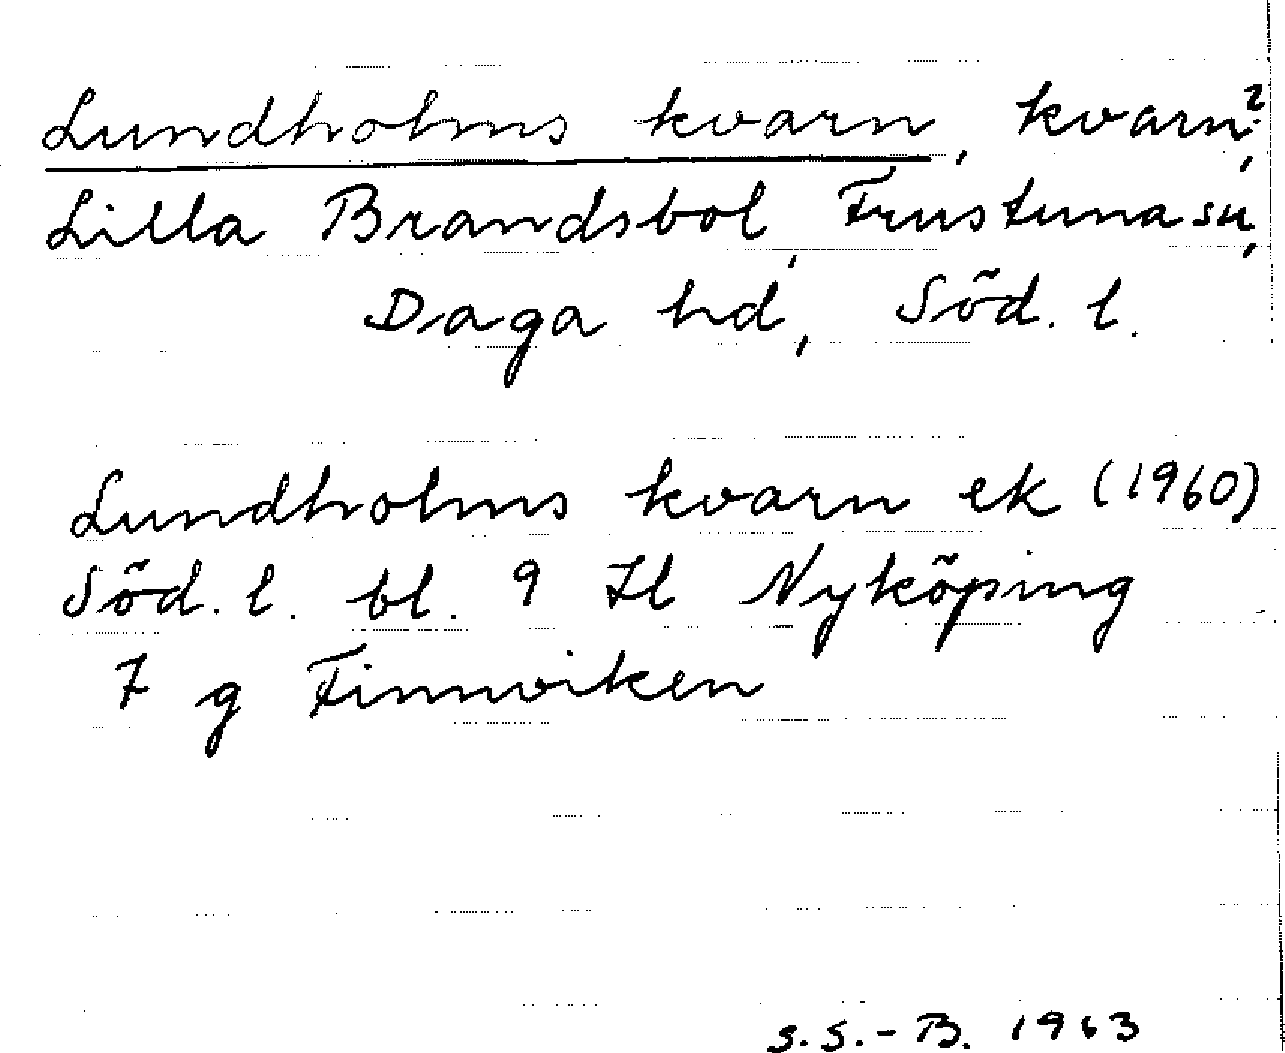 Lundholms kvarn, kvarn?,
Lilla Brandsbol, Frustuna sn,
Daga hd, Söd. l.
Lundholms kvarn ek (1960)
Söd. l. bl. 9 Il Nyköping
7 g Finnviken
S.S.-B. 1963